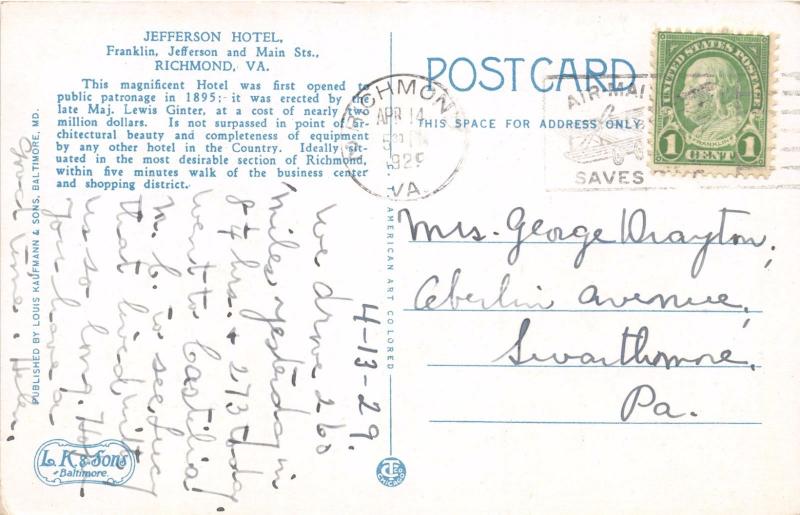 JEFFERSON HOTEL,
Franklin, Jefferson and Main Sts.,
RICHMOND, VA.
This magnificent Hotel was first opened to
public patronage in 1895;- it was erected by the
late Maj. Lewis Ginter, at a cost of nearly two
million dollars. Is not surpassed in point of ar-
chitectural beauty and completeness of equipment
by any other hotel in the Country. Ideally sit-
uated in the most desirable section of Richmond,
within five minutes walk of the business center
and shopping district.
PUBLISHED BY LOUIS KAUFMANN & SONS, BALTIMORE, MD.
4-13-29.
We drove 260
miles yesterday in
8¼ hrs. + 273 today
went to Castilia!
N.C. to see Lucy
that lived with
us so long. Hope
you have a
good time. Helen.
L. K & Sons
Baltimore.
POST CARD
THIS SPACE FOR ADDRESS ONLY
C. T. AMERICAN ART COLORED
CHICAGO
RICHMOND
APR 14
5 30
1929
VA.
AIR MAIL
SAVES
UNITED STATES POSTAGE
FRANKLIN
1 CENT 1
Mrs. George Drayton,
Oberlin Avenue,
Swarthmore,
Pa.